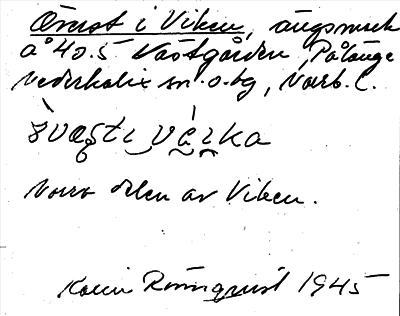 Övrast i Viken, ängsmark
å 4o.5 Västgården, Pålänge
Nederkalix sn o. bg, Norrb. l.
Norra delen av Viken.
Karin Rönnquist 1945